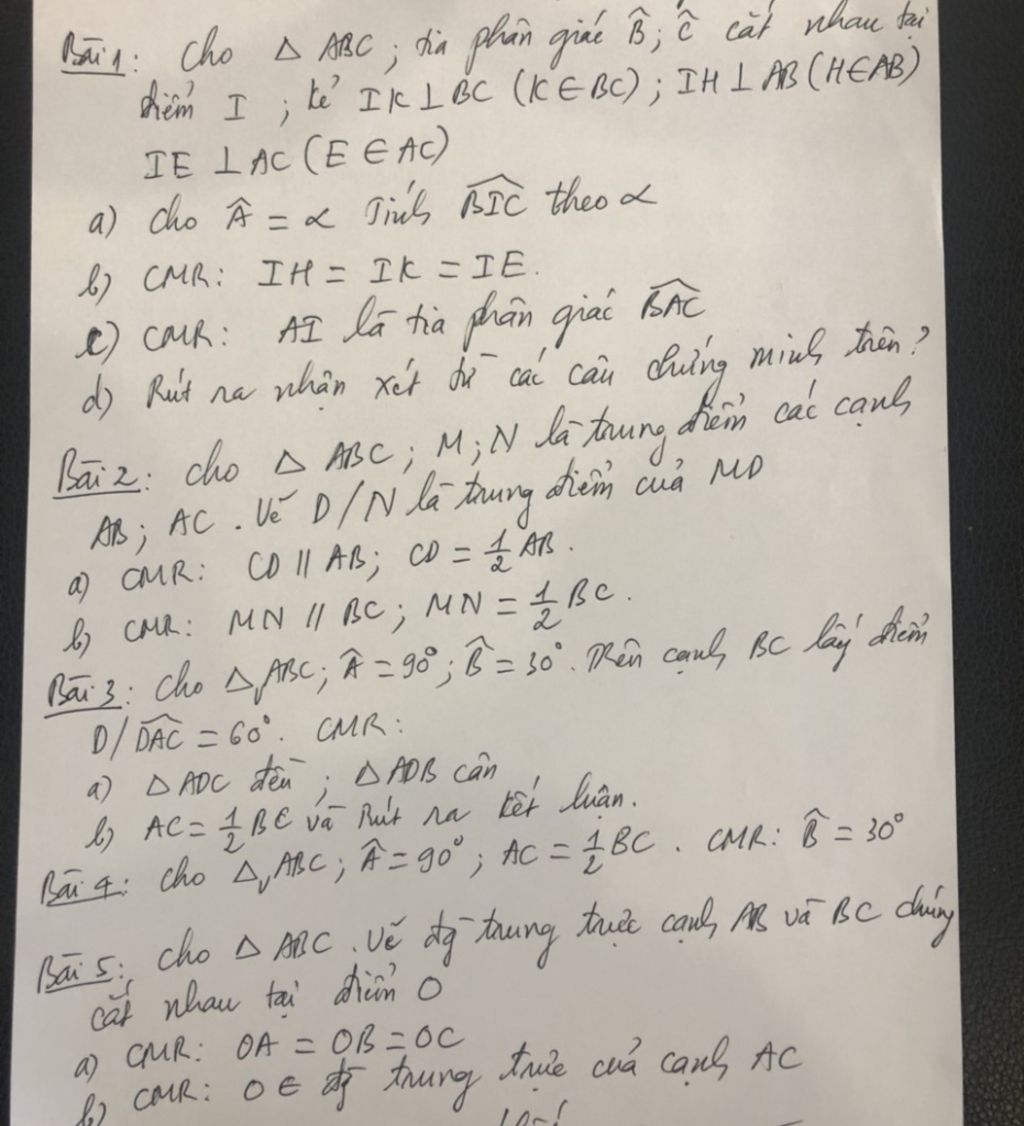 Bài 1: Cho △ ABC ; tia phân giác B̂ ; Ĉ cắt nhau tại
điểm I ; kẻ IK ⊥ BC (K ∈ BC) ; IH ⊥ AB (H ∈ AB)
IE ⊥ AC (E ∈ AC)
a) Cho Â = α Tính \widehat{BIC} theo α
b) CMR: IH = IK = IE.
c) CMR: AI là tia phân giác \widehat{BAC}
d) Rút ra nhận xét từ các câu chứng minh trên?
Bài 2: Cho △ ABC ; M ; N là trung điểm các cạnh
AB ; AC . Vẽ D / N là trung điểm của MD
a) CMR: CD // AB ; CD = \frac{1}{2} AB .
b) CMR: MN // BC ; MN = \frac{1}{2} BC .
Bài 3: Cho △v ABC ; Â = 90° ; B̂ = 30° . Trên cạnh BC lấy điểm
D / \widehat{DAC} = 60° . CMR:
a) △ ADC đều ; △ ADB cân
b) AC = \frac{1}{2} BC và Rút ra kết luận.
Bài 4: Cho △v ABC ; Â = 90° ; AC = \frac{1}{2} BC . CMR: B̂ = 30°
Bài 5: Cho △ ABC . Vẽ đg trung trực cạnh AB và BC chúng
cắt nhau tại điểm O
a) CMR: OA = OB = OC
b) CMR: O ∈ đg trung trực của cạnh AC